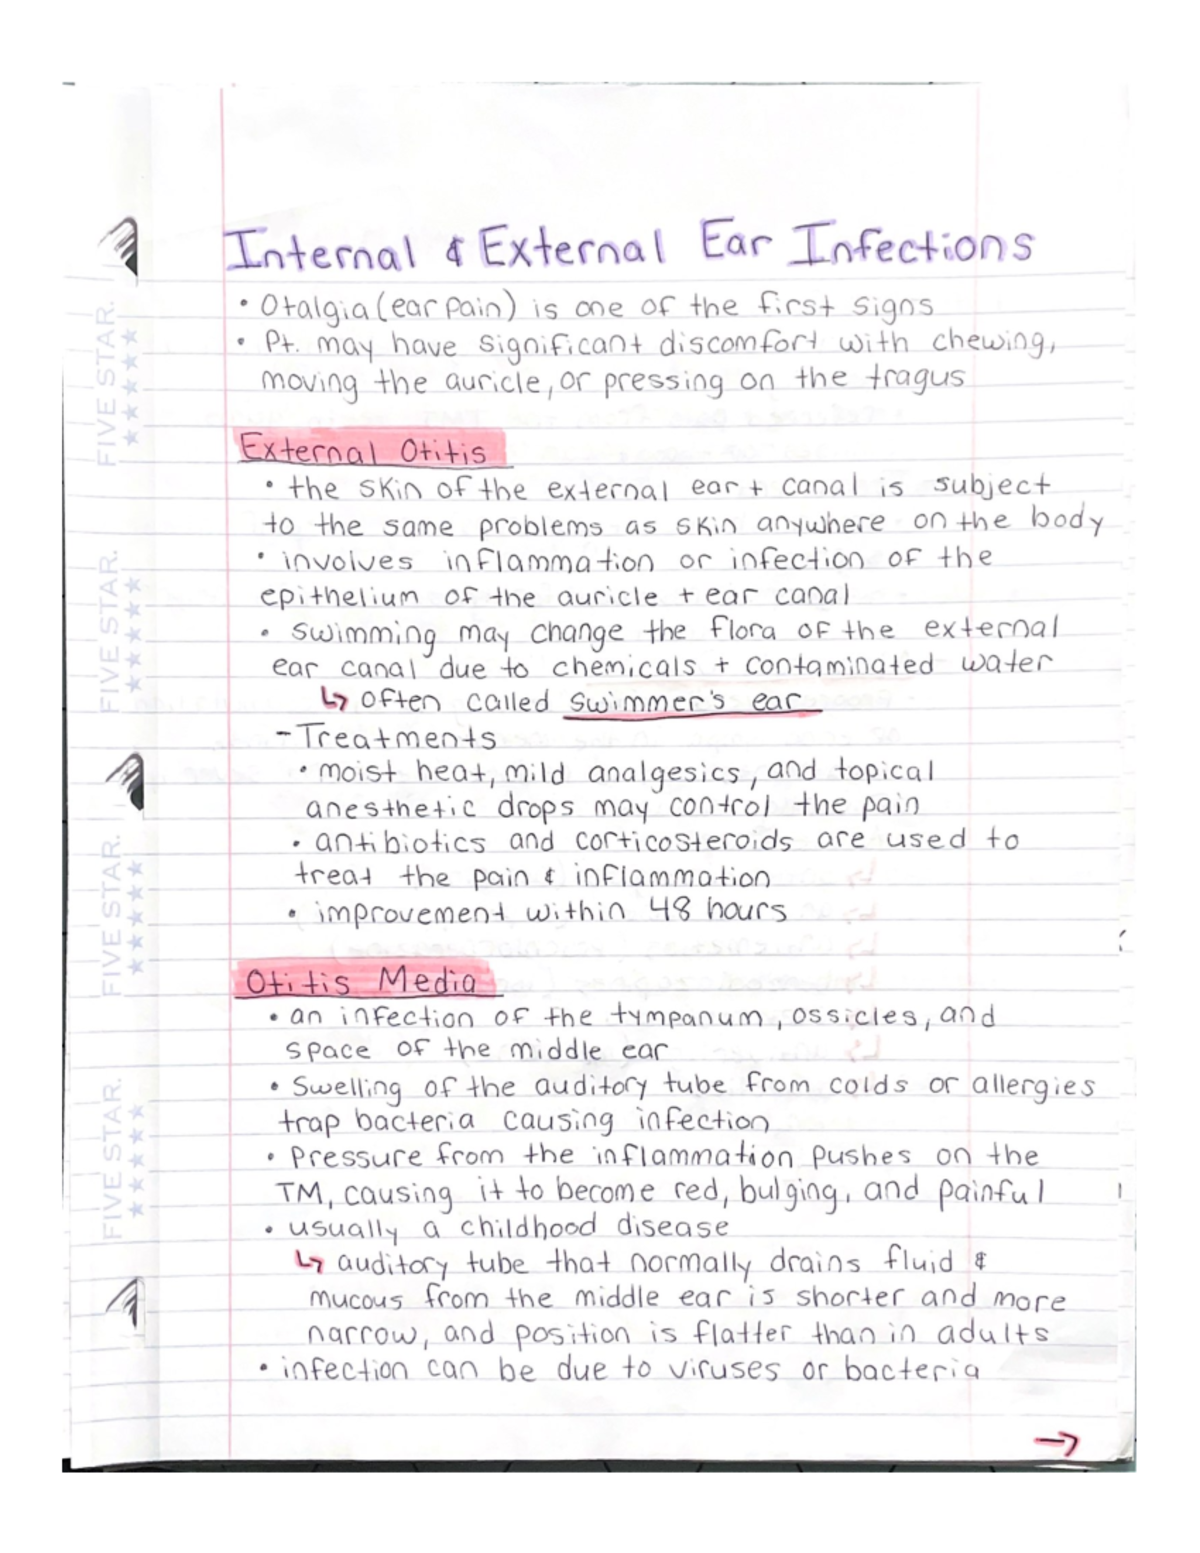 Internal & External Ear Infections
• Otalgia (ear pain) is one of the first signs
• Pt. may have significant discomfort with chewing,
moving the auricle, or pressing on the tragus
External Otitis
• the skin of the external ear + canal is subject
to the same problems as skin anywhere on the body
• involves inflammation or infection of the
epithelium of the auricle + ear canal
• swimming may change the flora of the external
ear canal due to chemicals + contaminated water
↳ often called swimmer's ear
- Treatments
• moist heat, mild analgesics, and topical
anesthetic drops may control the pain
• antibiotics and corticosteroids are used to
treat the pain & inflammation
• improvement within 48 hours
Otitis Media
• an infection of the tympanum, ossicles, and
space of the middle ear
• Swelling of the auditory tube from colds or allergies
trap bacteria causing infection
• Pressure from the inflammation pushes on the
TM, causing it to become red, bulging, and painful
• usually a childhood disease
↳ auditory tube that normally drains fluid &
mucous from the middle ear is shorter and more
narrow, and position is flatter than in adults
• infection can be due to viruses or bacteria
→
FIVE STAR.
FIVE STAR.
FIVE STAR.
FIVE STAR.